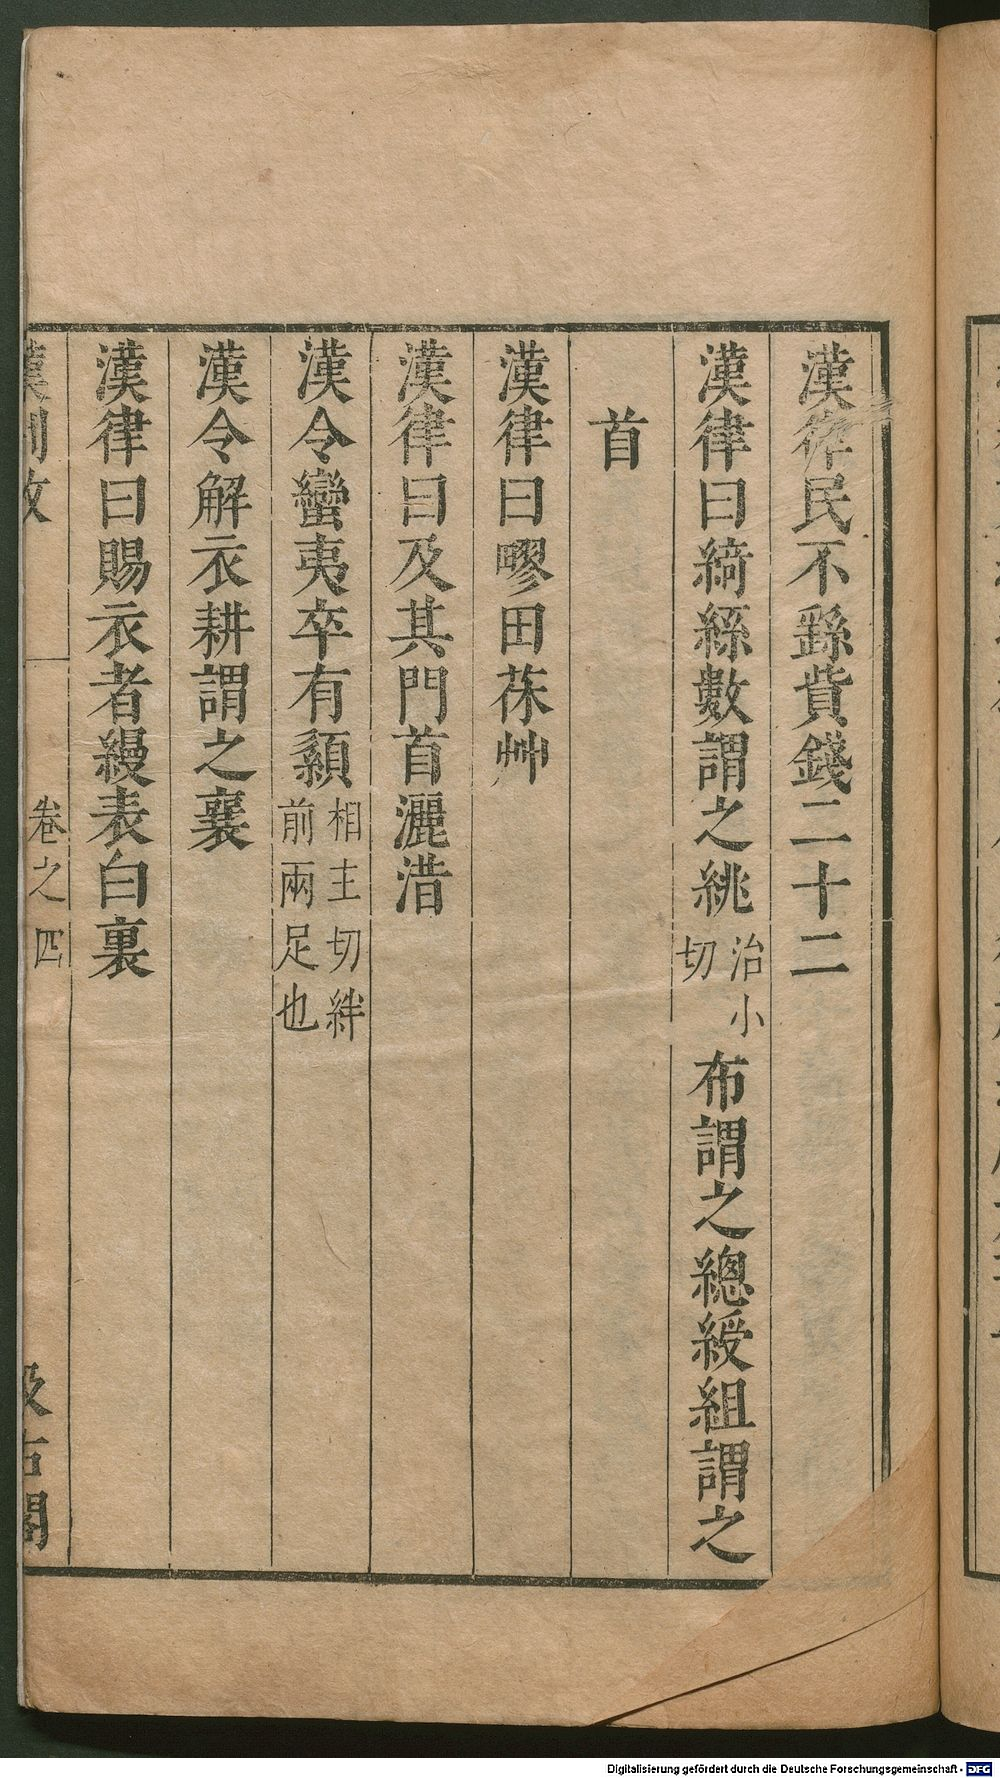 漢律民不繇貲錢二十二
漢律曰綺絲數謂之絩治小切布謂之總綬組謂之
首
漢律曰疁田茠艸
漢律曰及其門首灑浩
漢令蠻夷卒有顈相主切絆前兩足也
漢令解衣耕謂之襄
漢律曰賜衣者縵表白裏
漢制攷
卷之四
汲古閣
Digitalisierung gefördert durch die Deutsche Forschungsgemeinschaft - DFG